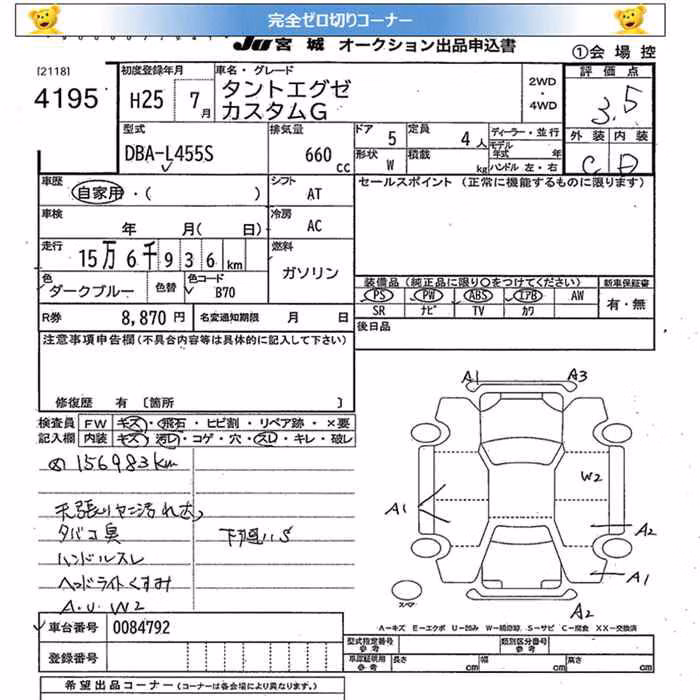 完全ゼロ切りコーナー
JU 宮城 オークション出品申込書
①会場控
[2118]
4195
初度登録年月
H25 7月
車名・グレード
タントエグゼ
カスタムG
2WD
・
4WD
評価点
3.5
外装 内装
C D
型式
DBA-L455S
排気量
660 cc
ドア 5
定員 4人
形状 W
積載 kg
ディーラー・並行
モデル年式 年
ハンドル 左・右
車歴
自家用・( )
シフト
AT
セールスポイント (正常に機能するものに限ります)
車検
年 月(日)
冷房
AC
走行
15万6千936km
燃料
ガソリン
色
ダークブルー
色替
色コード
B70
装備品(純正品に限り○をつけてください)
新車保証書
PS PW ABS エアB AW
有・無
SR ナビ TV カワ
R券 8,870円
名変通知期限 月 日
後日品
注意事項申告欄(不具合内容等は具体的に記入して下さい)
修復歴 有 〔箇所 〕
検査員
記入欄
FW キズ・飛石・ヒビ割・リペア跡・×要
内装 キズ・汚レ・コゲ・穴・スレ・キレ・破レ
156983km
天張りヤニ汚れ大
タバコ臭
下廻りS
ハンドルスレ
ヘッドライトくすみ
A.U.W2
A1 A3
W2
A1
A2
A1
A2
スペア
A-キズ E-エクボ U-凹み W-補修跡 S-サビ C-腐食 XX-交換済
車台番号 0084792
登録番号
型式指定番号
参考
類別区分番号
参考
車庫証明用
参考
長さ cm
幅 cm
高さ cm
希望出品コーナー(コーナーは各会場により異なります。)